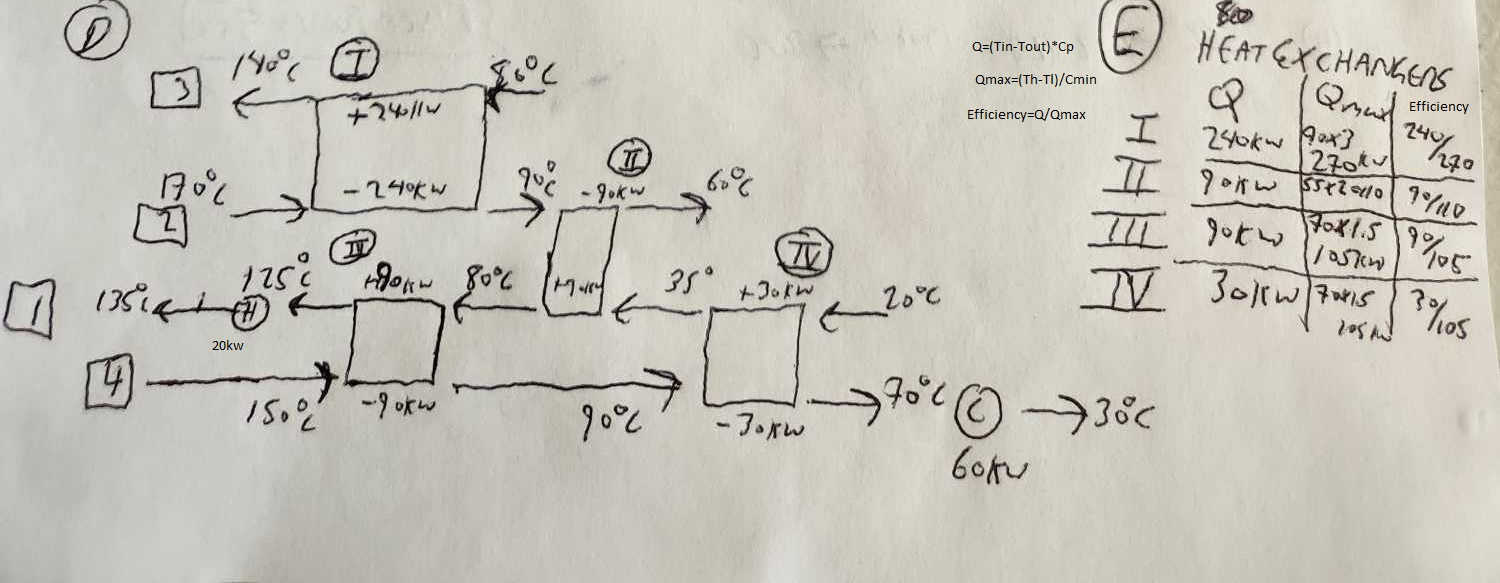 D
140°C
I
80°C
3
+240kw
170°C
-240kw
90°C
II
-90kw
60°C
2
125°C
IV
+90kw
80°C
35°
IV
+30kw
20°C
1
135°C
H
20kw
4
150°C
-90kw
90°C
-30kw
70°C
C
30°C
60kw
Q=(Tin-Tout)*Cp
Qmax=(Th-Tl)/Cmin
Efficiency=Q/Qmax
E
HEAT EXCHANGERS
Q Qmax Efficiency
I 240kw 90x3 270kw 240/270
II 90kw 55x2=110 90/110
III 90kw 70x1.5 105kw 90/105
IV 30kw 70x1.5 105kw 30/105